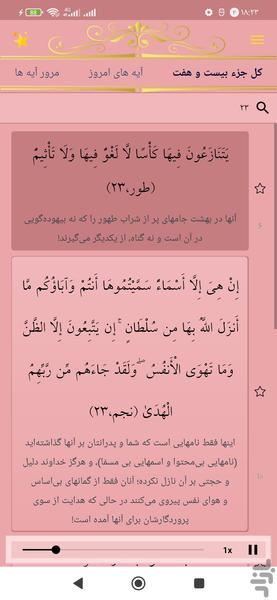 ۱۸:۲۳
کل جزء بیست و هفت
آیه های امروز
مرور آیه ها
۲۳
يَتَنَازَعُونَ فِيهَا كَأْسًا لَّا لَغْوٌ فِيهَا وَلَا تَأْثِيمٌ
(طور،۲۳)
آنها در بهشت جامهای پر از شراب طهور را که نه بیهوده‌گویی
در آن است و نه گناه، از یکدیگر می‌گیرند!
إِنْ هِيَ إِلَّا أَسْمَاءٌ سَمَّيْتُمُوهَا أَنتُمْ وَآبَاؤُكُم مَّا
أَنزَلَ اللَّهُ بِهَا مِن سُلْطَانٍ ۚ إِن يَتَّبِعُونَ إِلَّا الظَّنَّ
وَمَا تَهْوَى الْأَنفُسُ ۖ وَلَقَدْ جَاءَهُم مِّن رَّبِّهِمُ
الْهُدَىٰ (نجم،۲۳)
اینها فقط نامهایی است که شما و پدرانتان بر آنها گذاشته‌اید
(نامهایی بی‌محتوا و اسمهایی بی مسمّا)، و هرگز خداوند دلیل
و حجتی بر آن نازل نکرده؛ آنان فقط از گمانهای بی‌اساس
و هوای نفس پیروی می‌کنند در حالی که هدایت از سوی
پروردگارشان برای آنها آمده است!
1x
بازار